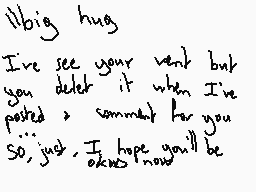 \\big hug
I've see your vent but
you delet it when I've
posted a comment for you
...
So, just, I hope you'll be
okay now